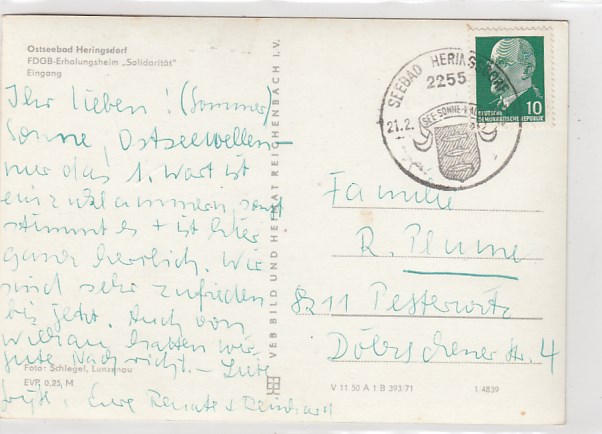 Ostseebad Heringsdorf
FDGB-Erholungsheim „Solidarität“
Eingang
Ihr Lieben! (Sommer)
Sonne, Ostseewellen –
nur das 1. Wort ist
einzuklammern, sonst
stimmt es + ist hier
ganz herrlich. Wir
sind sehr zufrieden
bis jetzt. Auch von
hatten wir
gute Nachricht. – Liebe
Grüße Eure Renate + Reinhard
Foto: Schlegel, Lunzenau
EVP 0,25 M
VEB BILD UND HEIMAT REICHENBACH I.V.
SEEBAD HERINGSDORF
2255
21.2.
10
DEUTSCHE
DEMOKRATISCHE REPUBLIK
Familie
R. Plume
8211 Pesterwitz
Döltzschener Str. 4
V 11 50 A 1 B 393/71
1/4839